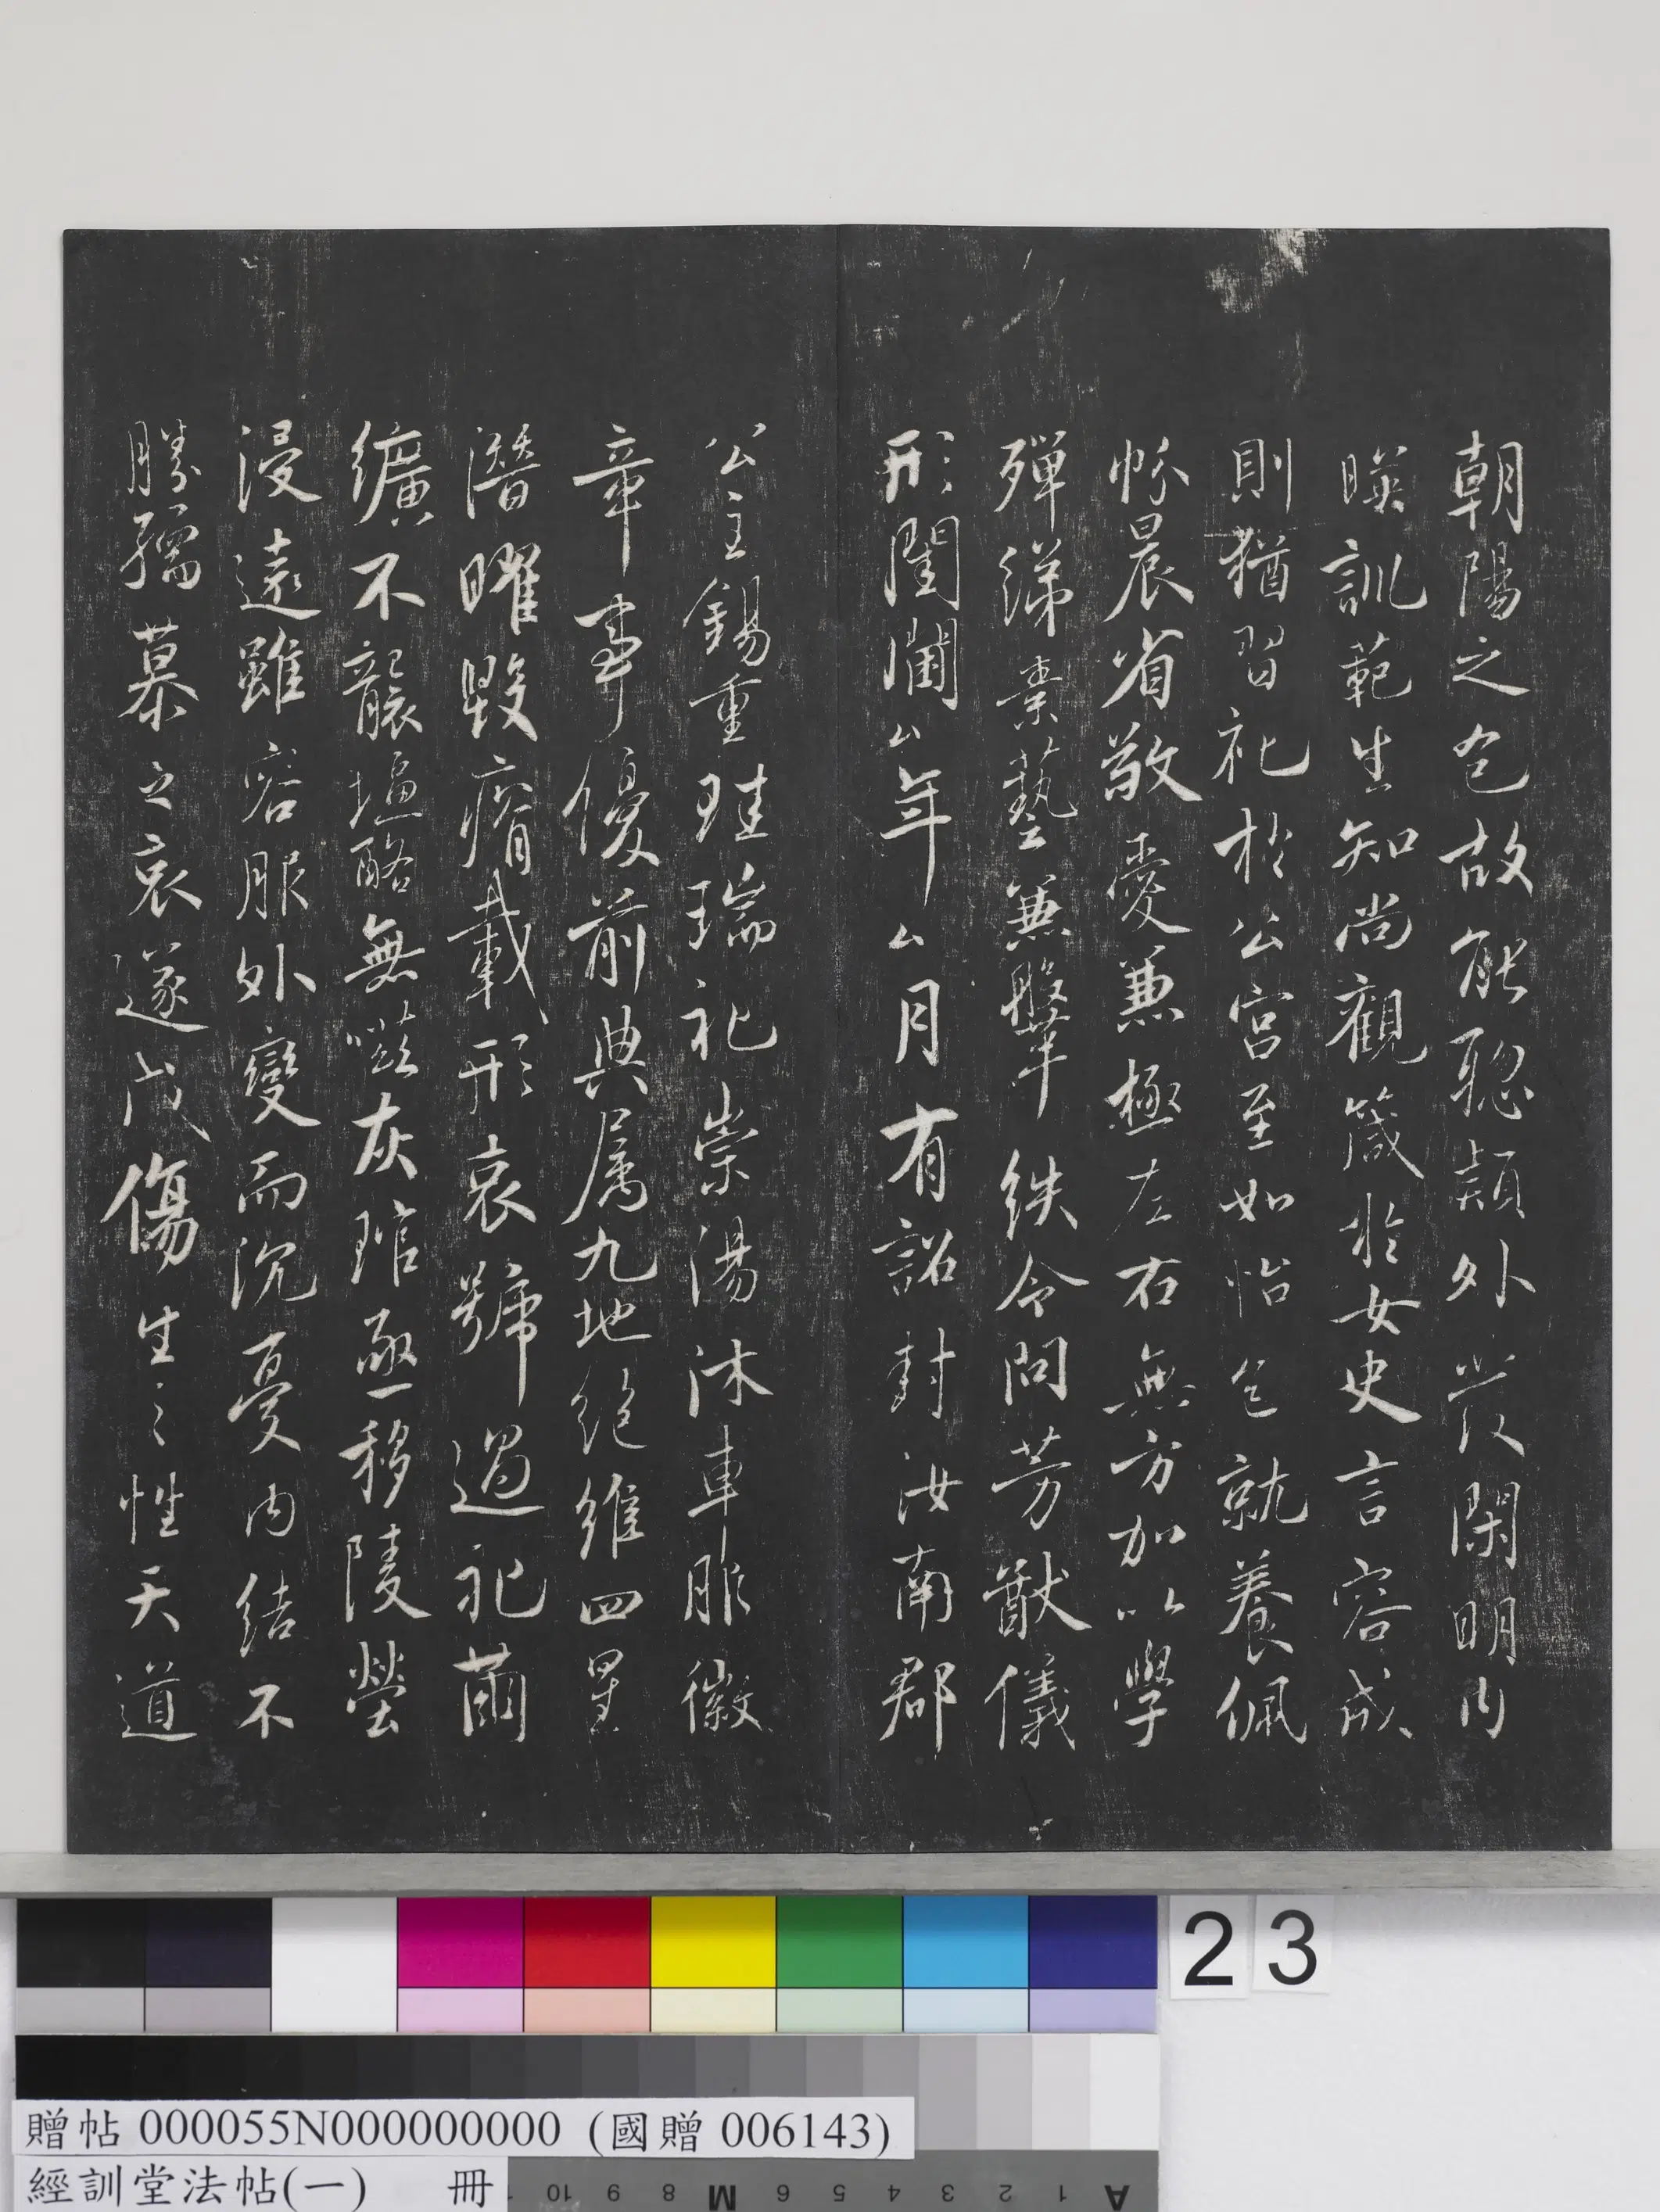 朝陽之色故能聦穎外發閑明內
暎訓範生知尚觀箴於女史言容成
則猶習禮於公宮至如怡色就養佩
帉晨省敬愛兼極左右無方加以學
殫綈素藝兼鞶紩令問芳猷儀
形閨閫厶年厶月有詔封汝南郡
公主錫重珪瑞禮崇湯沐車服徽
章事優前典属九地絕維四星
潛曜毀瘠載形哀號過禮繭
纊不襲塩酪無嗞灰琯亟移陵塋
浸遠雖容服外變而沉憂內結不
勝孺慕之哀遂成傷生之性天道
23
贈帖 000055N000000000 (國贈 006143)
經訓堂法帖(一) 冊
A 1 2 3 4 5 6 M 8 9 10